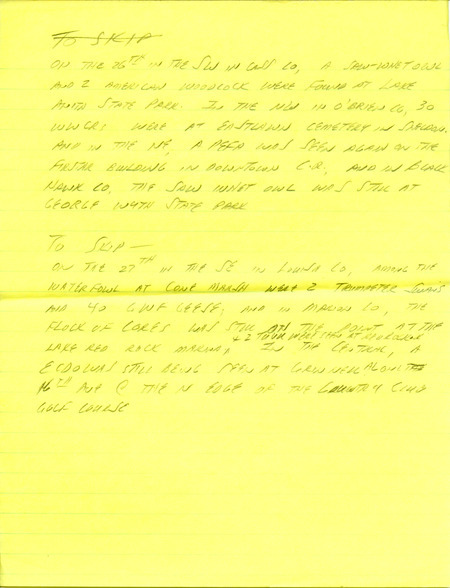 TO SKIP
ON THE 26TH IN THE SW IN CASS CO, A SAW-WHET OWL
AND 2 AMERICAN WOODCOCK WERE FOUND AT LAKE
ANITA STATE PARK. IN THE NW IN O'BRIEN CO, 30
WWCR'S WERE AT EASTLAWN CEMETERY IN SHELDON.
AND IN THE NE, A PEFA WAS SEEN AGAIN ON THE
FIRSTAR BUILDING IN DOWNTOWN C.R., AND IN BLACK
HAWK CO, THE SAW WHET OWL WAS STILL AT
GEORGE WYTH STATE PARK
TO SKIP —
ON THE 27TH IN THE SE IN LOUISA CO, AMONG THE
WATERFOWL AT CONE MARSH WERE 2 TRUMPETER SWANS
AND 40 GWF GEESE; AND IN MARION CO, THE
FLOCK OF CORES WAS STILL AT THE POINT AT THE
& 2 TUVU WERE SEEN AT
LAKE RED ROCK MARINA; IN THE CENTRAL, A
ECDO WAS STILL BEING SEEN AT GRINNELL ALONG
16TH AVE @ THE N EDGE OF THE COUNTRY CLUB
GOLF COURSE